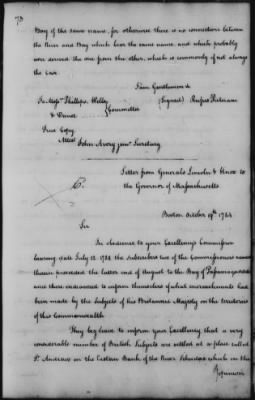 73
Bay of the same name, for otherwise there is no connection between
the River and Bay which bear the same name and which probably
were derived the one from the other, which is commonly if not always
the case.
I am Gentlemen &c
To Messrs Phillips, Wells (Signed) Rufus Putnam
& Committee
True Copy
Attest
John Avery junr Secretary
C.
Letter from Generals Lincoln & Knox to
the Governor of Massachusetts
Boston October 19th 1784
Sir
In obedience to your Excellency's Commission
bearing date July 12. 1784 the Subscribers two of the Commissioners named
therein proceeded the latter end of August to the Bay of Passamaquoddy
and there endeavored to inform themselves of what encroachments had
been made by the Subjects of his Britannic Majesty on the territories
of this Commonwealth
They beg leave to inform your Excellency that a very
considerable number of British Subjects are settled at a place called
St Andrews on the Eastern Bank of the River Schudac which in the